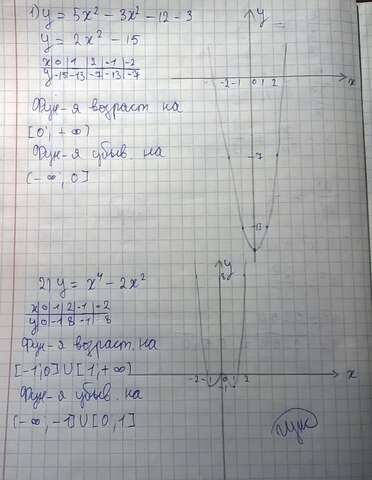 1) y = 5x² - 3x² - 12 - 3
y = 2x² - 15
x 0 1 2 -1 -2
y -15 -13 -7 -13 -7
Фун-я возраст. на
[0; +∞)
Фун-я убыв. на
(-∞; 0]
y
-2 -1 0 1 2 x
-7
13
2) y = x⁴ - 2x²
x 0 1 2 -1 -2
y 0 -1 8 -1 8
Фун-я возраст. на
[-1;0] U [1,+∞)
Фун-я убыв. на
(-∞, -1] U [0,1]
y
8
-2 0 2 x